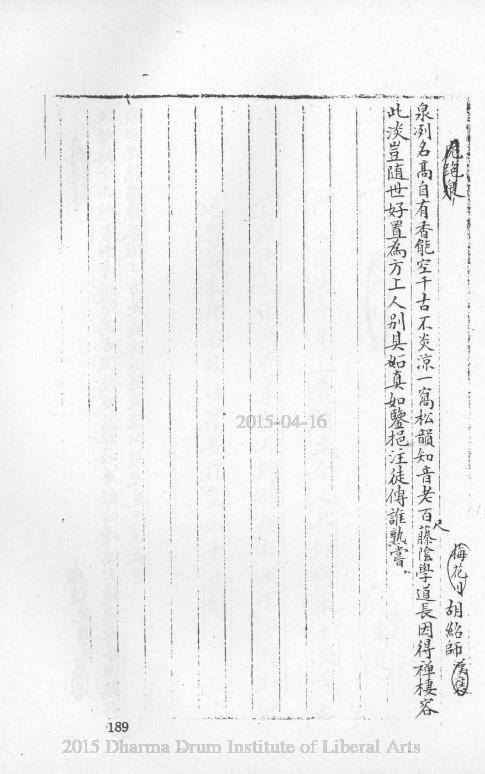 虎跑泉
梅花月 胡紹師
泉冽名髙自有香能空千古不炎凉一窩松韻知音老百尺藤陰學道長因得禅棲容
此淡豈随世好置為方上人别具如真如鑒挹注徒傳誰熟嘗
2015-04-16
189
2015 Dharma Drum Institute of Liberal Arts